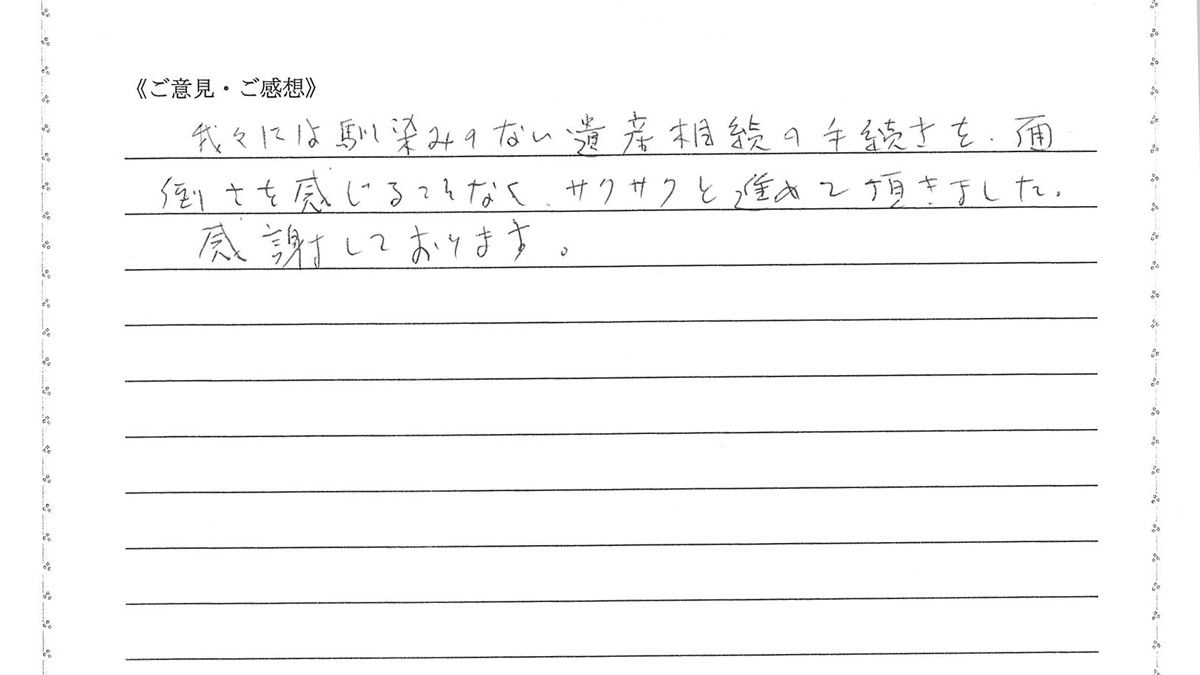 《ご意見・ご感想》
我々には馴染みのない遺産相続の手続きを、面
倒さを感じることなく、サクサクと進めて頂きました。
感謝しております。